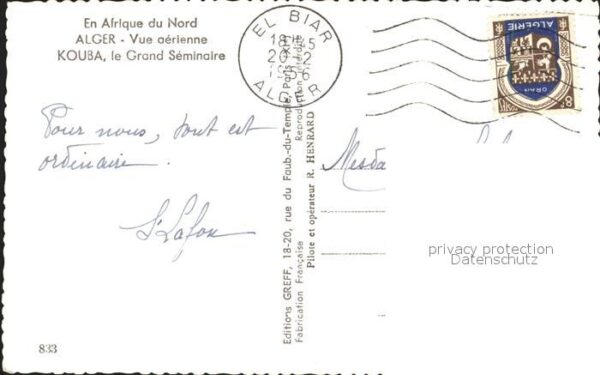 En Afrique du Nord
ALGER - Vue aérienne
KOUBA, le Grand Séminaire
EL BIAR
ALGER
ALGERIE
ORAN
8F
Pour nous, tout est
ordinaire.
Editions GREFF, 18-20, rue du Faub.-du-Temple, Paris
Fabrication Française
Reproduction interdite
Pilote et opérateur R. HENRARD
Mesda
privacy protection
Datenschutz
833